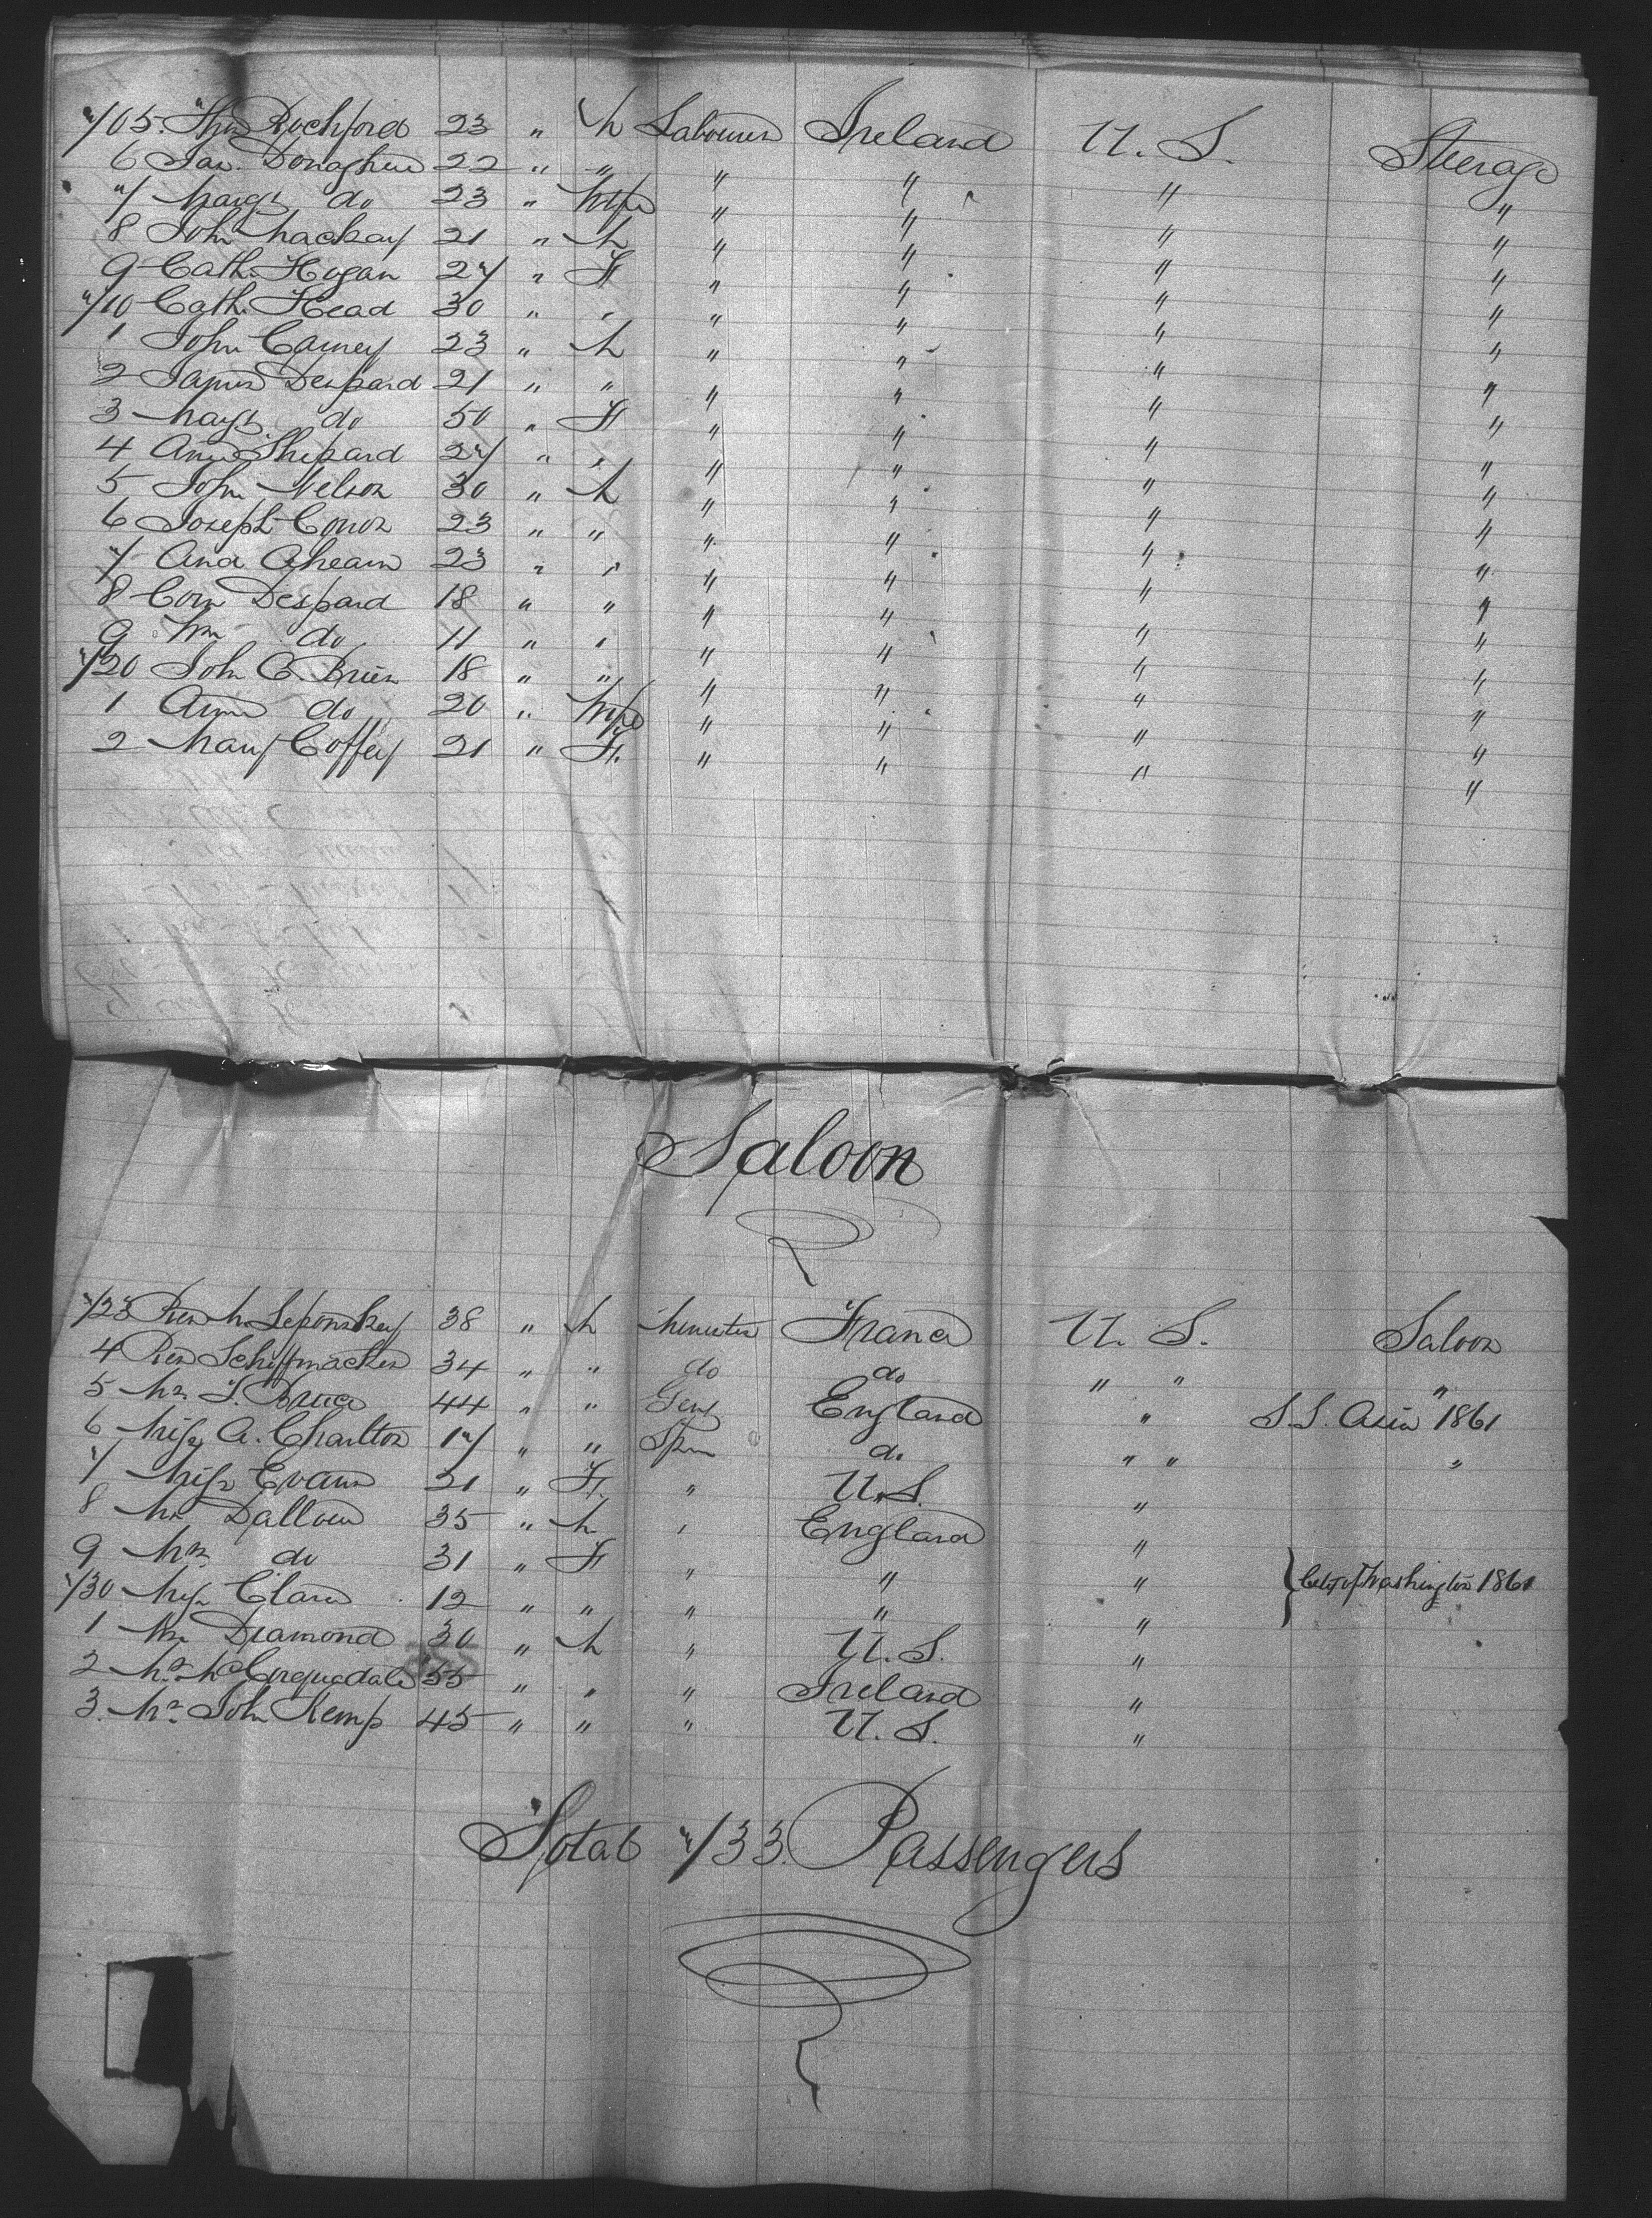 705. Thos Rochford 23 " M Labourer Ireland U. S. Steerage
6 Jas. Donaghue 22 " " " " " "
7 Margt do 23 " Wife " " " "
8 John Mackay 21 " M " " " "
9 Cath. Hogan 27 " F " " " "
710 Cath. Head 30 " " " " " "
1 John Carney 23 " M " " " "
2 James Despard 21 " " " " " "
3 Margt. do 50 " F " " " "
4 Ann Shepard 27 " " " " " "
5 John Nelson 30 " M " " " "
6 Joseph Conor 23 " " " " " "
7 And Ahearn 23 " " " " " "
8 Corn Despard 18 " " " " " "
9 Wm do 11 " " " " " "
720 John O. Brien 18 " " " " " "
1 Anne do 20 " Wife " " " "
2 Mary Coffey 21 " F. " " " "
Saloon
723 Rev M. 38 " M Minister France U. S. Saloon
4 Rev Schiffmacker 34 " " do do " " "
5 Mr. T. Bruce 44 " " Gent England " S.S. Asia 1861
6 Miss A. Charlton 17 " " Spin do " " "
7 Miss Evans 21 " F. " U.S. "
8 Mr Dallow 35 " M " England "
9 Mrs. do 31 " F " " " } City of Washington 1861
730 Miss Clara 12 " " " " "
1 Mr Diamond 30 " M " U. S. "
2 Mr. McCorquodale 55 " " " Ireland "
3. Mr. John Kemp 45 " " " U. S. "
Total 733. Passengers